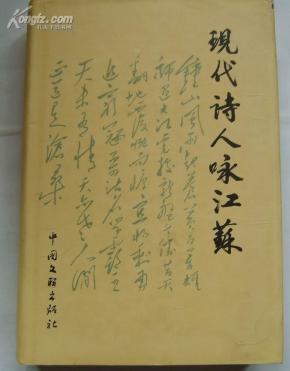 孔夫子旧书网
KONGFZ.COM
現代诗人咏江蘇
鍾山風雨起蒼黃百万雄
師过大江虎踞龍盤今勝昔天
翻地覆慨而慷宜將剩勇
追窮寇不可沽名學霸王
天若有情天亦老人間
正道是滄桑
中国文联出版社